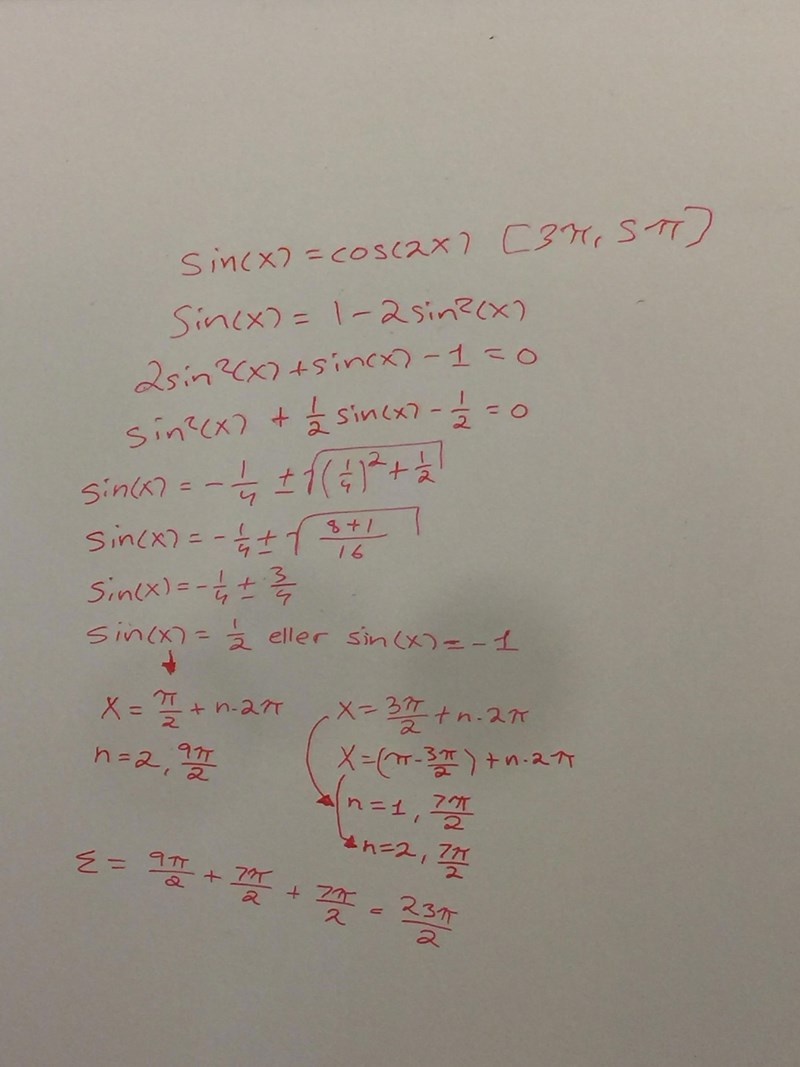 sin(x) = cos(2x) [3π, 5π]
sin(x) = 1 - 2sin²(x)
2sin²(x) + sin(x) - 1 = 0
sin²(x) + 1/2 sin(x) - 1/2 = 0
sin(x) = - 1/4 ± √((1/4)² + 1/2)
sin(x) = - 1/4 ± √((8+1)/16)
sin(x) = - 1/4 ± 3/4
sin(x) = 1/2 eller sin(x) = - 1
x = π/2 + n·2π
n = 2, 9π/2
x = 3π/2 + n·2π
x = (π - 3π/2) + n·2π
n = 1, 7π/2
n = 2, 7π/2
Σ = 9π/2 + 7π/2 + 7π/2 = 23π/2